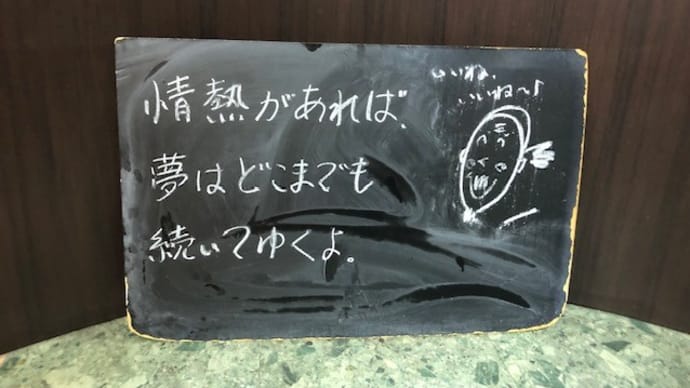 情熱があれば、
夢はどこまでも
続いてゆくよ。
いいね、
いいね〜♪